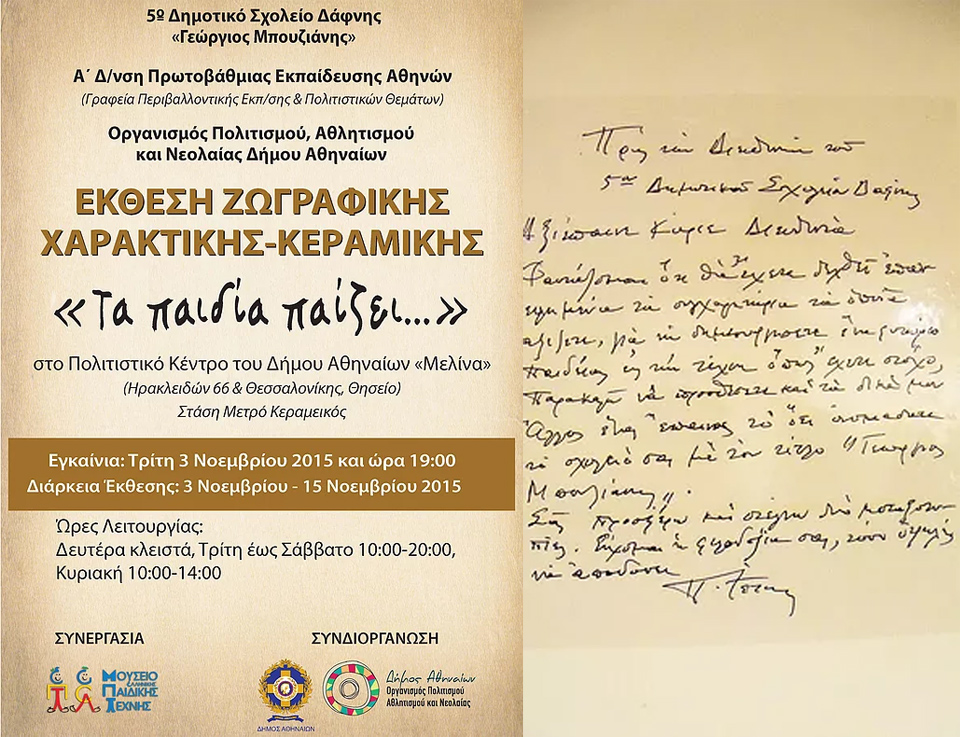 5º Δημοτικό Σχολείο Δάφνης
«Γεώργιος Μπουζιάνης»
Α΄ Δ/νση Πρωτοβάθμιας Εκπαίδευσης Αθηνών
(Γραφεία Περιβαλλοντικής Εκπ/σης & Πολιτιστικών Θεμάτων)
Οργανισμός Πολιτισμού, Αθλητισμού
και Νεολαίας Δήμου Αθηναίων
ΕΚΘΕΣΗ ΖΩΓΡΑΦΙΚΗΣ
ΧΑΡΑΚΤΙΚΗΣ-ΚΕΡΑΜΙΚΗΣ
«Τα παιδία παίζει...»
στο Πολιτιστικό Κέντρο του Δήμου Αθηναίων «Μελίνα»
(Ηρακλειδών 66 & Θεσσαλονίκης, Θησείο)
Στάση Μετρό Κεραμεικός
Εγκαίνια: Τρίτη 3 Νοεμβρίου 2015 και ώρα 19:00
Διάρκεια Έκθεσης: 3 Νοεμβρίου - 15 Νοεμβρίου 2015
Ώρες Λειτουργίας:
Δευτέρα κλειστά, Τρίτη έως Σάββατο 10:00-20:00,
Κυριακή 10:00-14:00
ΣΥΝΕΡΓΑΣΙΑ
ΣΥΝΔΙΟΡΓΑΝΩΣΗ
ΜΟΥΣΕΙΟ
ΕΛΛΗΝΙΚΗΣ
ΠΑΙΔΙΚΗΣ
ΤΕΧΝΗΣ
ΔΗΜΟΣ ΑΘΗΝΑΙΩΝ
Δήμος Αθηναίων
Οργανισμός Πολιτισμού
Αθλητισμού και Νεολαίας
Πρός τον Διευθυντή του
5ου Δημοτικού Σχολείου Δάφνης
Ἀξιέπαινε Κύριε Διευθυντά
Φαντάζομαι ὅτι θἄχετε δεχθεῖ
τά συγχαρητήρια
ἀξίζετε, γιά νά δημιουργήσετε
παιδείας τήν τέχνη στόχο,
Παρακαλῶ νά προσθέσετε καί τά δικά μου
Ἄλλος ἕνας ἔπαινος τό ὅτι ὀνομάσατε
τό σχολεῖο σας μέ τον τίτλο "Γεώργιος
Μπουζιάνης".
Σᾶς προσφέρω καί στέλνω δύο
Εὔχομαι ἡ φιλοδοξία σας,
νά ἀποδώσει